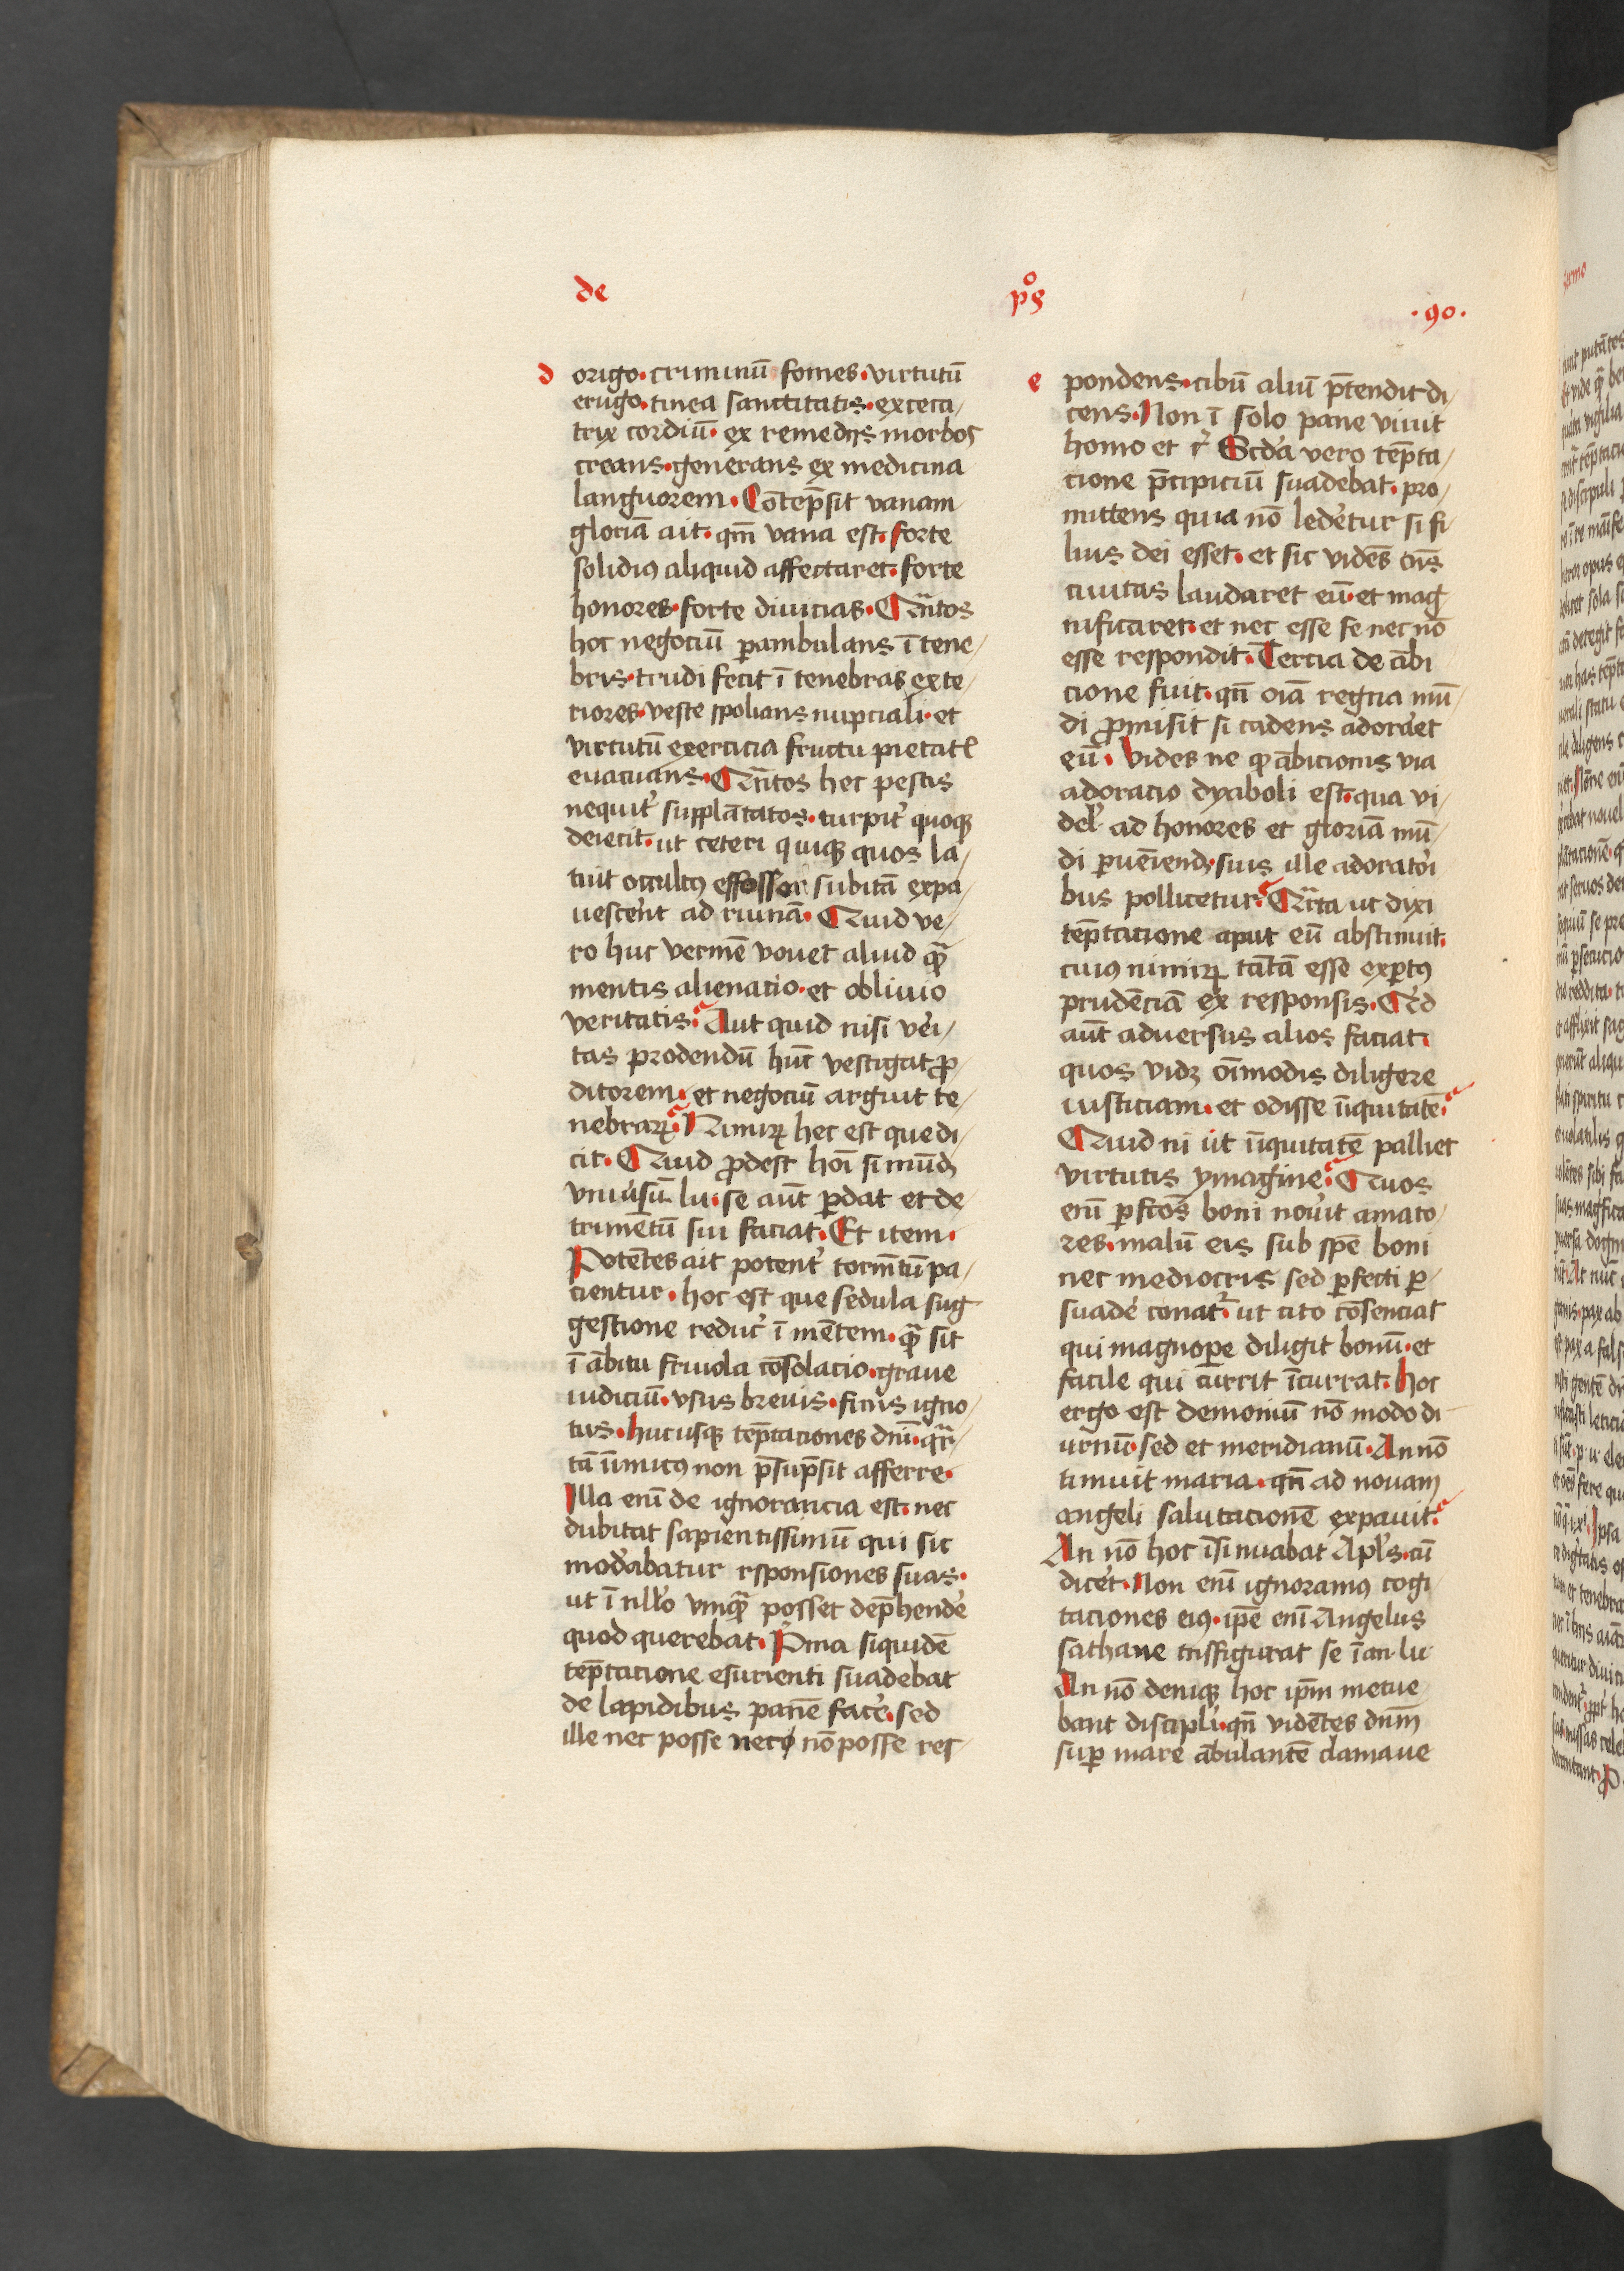 de
pͦs
·90·
d
origo·criminū fomes·virtutū
erugo·tinea sanctitatis·exceca/
trix cordiū· ex remedijs morbos
creans·generans ex medicina
languorem·Cōtēp̄sit vanam
gloriā ait·qm̄ vana est·forte
solidiꝰ aliquid affectaret·forte
honores·forte diuicias·Quātos
hoc negociū ꝑambulans ī tene/
bris·trudi fecit ī tenebras exte/
riores·veste spolians nupciali·et
virtutū exercicia fructu pietatꝭ
euacuans·Quātos hec pestis
nequit᷒ supplātatos·turpit᷒ quoqꝫ
deiecit·ut ceteri quiqꝫ quos la/
tuit occultꝰ effossor subitā expa/
uescerent ad ruinā·Quid ve/
ro huc vermē vouet aliud qᷓ
mentis alienatio·et obliuio
veritatis·Aut quid nisi vei᷒/
tas prodendū hūc vestigat ꝓ/
ditorem·et negociū arguit te/
nebraꝝ·Nimiꝝ hec est que di/
cit·Quid ꝓdest hoī si mūdꝫ
vniu᷒sū lu·se aūt ꝑdat et de/
trimētū sui faciat·Et item·
Potētes ait potent᷒ tormēta pa/
cientur·hoc est que sedula sug/
gestione reduc᷒ ī mētem·qᷓ sit
ī ābitu friuola cōsolacio·graue
iudiciū·vsus breuis·finis igno/
tus·hucusqꝫ tēptaciones dnī·qᷓr/
tā inīmicꝰ non p̄sūp̄sit afferre·
Illa enī de ignorancia est·nec
dubitat sapientissimū qui sic
mod᷒abatur rsponsiones suas·
ut ī nllo᷒ vmqᷓ posset dep̄hende᷒
quod querebat·Pͥma siquidē
tēptacione esurienti suadebat
de lapidibus panē face᷒·sed
ille nec posse nec nō posse res/
e
pondens·cibū aliū p̄tendit di/
cens·Non ī solo pane viuit
homo et c᷒ Scd᷒a vero tēpta/
cione p̄cipiciū suadebat·pro/
mittens quia nō led᷒etur si fi/
lius dei esset·et sic vidēs oīs
ciuitas laudaret eū·et mag/
nificaret·et nec esse se nec nō
esse respondit·Tercia de ābi
cione fuit·qn̄ oīa regna mū/
di ꝓmisit si cadens adora᷒et
eū·Vides ne qꝫ ābicionis via
adoracio dyaboli est·qua vi/
delꝫ ad honores et gloriā mū/
di ꝑueniendꝫ·suis ille adoratoi᷒
bus pollicetur·Quarta ut dixi
tēptacione aput eū abstinuit·
cuiꝰ nimiꝝ tātā esse exꝑtꝰ
prudēciā ex responsis·Quid
aūt aduersus alios faciat·
quos vidꝫ oīmodis diligere
iusticiam·et odisse inīquitatē·
Quid ni ut inīquitatē palliet
virtutis ymagine·Quos
enī ꝑfc̄os boni nouit amato/
res·malū eis sub spē boni
nec mediocris sed ꝑfecti ꝑ/
suade᷒ conat᷒·ut cito cōsenciat
qui magnoꝑe diligit bonū·et
facile qui currit īcurrat·hoc
ergo est demoniū nō modo di
urnū·sed et meridianū·An nō
timuit maria·qn̄ ad nouam
angeli salutacionē expauit·
An nō hoc īsinuabat Apl̄s·cū
dicet᷒·Non enī ignoramꝰ cogi
taciones eiꝰ·ip̄e enī Angelus
sathane trn̄sfigurat se ī an·lu·
An nō deniqꝫ hoc ip̄m metue
bant discipli᷒·qn̄ vidētes dnm̄
suꝑ mare ābulantē clamaue